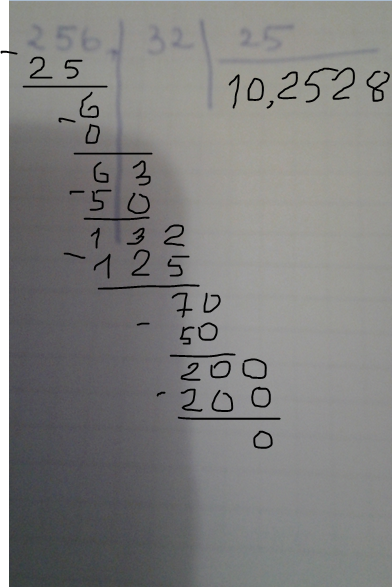 256, 32 25
- 25 10,2528
6
- 0
63
- 50
132
- 125
70
- 50
200
- 200
0